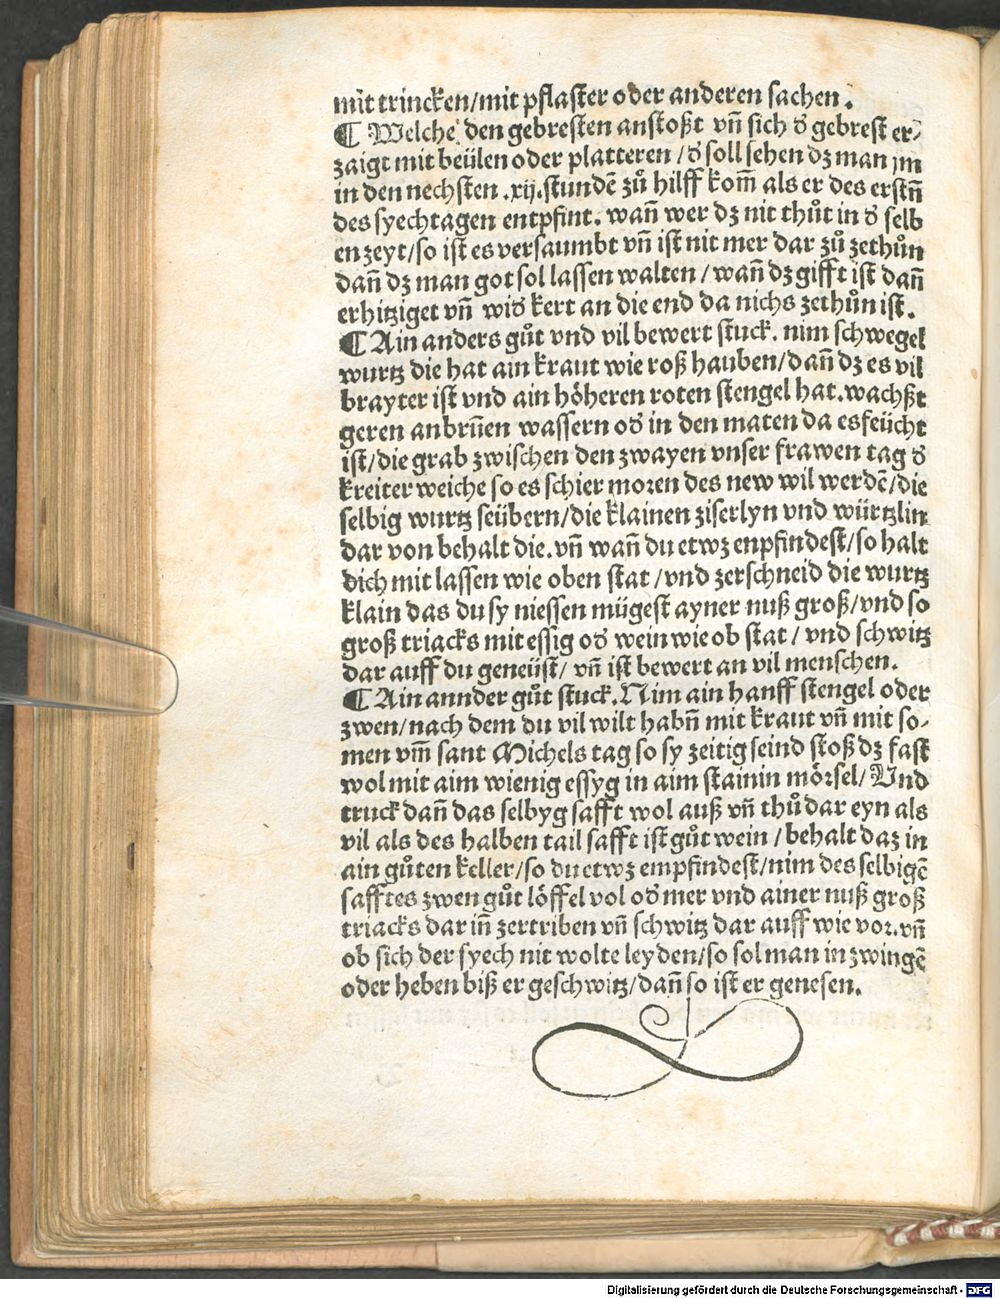 mit trincken/mit pflaster oder anderen sachen.
¶ Welche den gebresten anstoßt vn̄ sich d̕ gebrest er⸗
zaigt mit beülen oder platteren/d̕ soll sehen dz man jm
in den nechsten .xij. stundē zů hilff kom̄ als er des erstn̄
des syechtagen entpfint. wan̄ wer dz nit thůt in d̕ selb
en zeyt/so ist es versaumbt vn̄ ist nit mer dar zů zethůn
dan̄ dz man got sol lassen walten/wan̄ dz gifft ist dan̄
erhitziget vn̄ wid̕ kert an die end da nichs zethůn ist.
¶ Ain anders gůt vnd vil bewert stuck. nim schwegel
wurtz die hat ain kraut wie roß hauben/dan̄ dz es vil
brayter ist vnd ain höheren roten stengel hat. wachßt
geren an brūen wassern od̕ in den maten da es feücht
ist/die grab zwischen den zwayen vnser frawen tag d̕
kreiter weiche so es schier moꝛen des new wil werdē/die
selbig wurtz seübern/die klainen ziserlyn vnd würtzlin
dar von behalt die. vn̄ wan̄ du etwz enpfindest/so halt
dich mit lassen wie oben stat/vnd zerschneid die wurtz
klain das du sy niessen mügest ayner nuß groß/vnd so
groß triacks mit essig od̕ wein wie ob stat/vnd schwitz
dar auff du geneüst/vn̄ ist bewert an vil menschen.
¶ Ain annder gůt stuck. Nim ain hanff stengel oder
zwen/nach dem du vil wilt habn̄ mit kraut vn̄ mit so⸗
men vm̄ sant Michels tag so sy zeitig seind stoß dz fast
wol mit aim wienig essyg in aim stainin möꝛsel/Vnd
truck dan̄ das selbyg safft wol auß vn̄ thů dar eyn als
vil als des halben tail safft ist gůt wein/behalt daz in
ain gůten keller/so du etwz empfindest/nim des selbigē
safftes zwen gůt löffel vol od̕ mer vnd ainer nuß groß
triacks dar in̄ zertriben vn̄ schwitz dar auff wie voꝛ. vn̄
ob sich der syech nit wolte leyden/so sol man in zwingē
oder heben biß er geschwitz/dan̄ so ist er genesen.
Digitalisierung gefördert durch die Deutsche Forschungsgemeinschaft - DFG